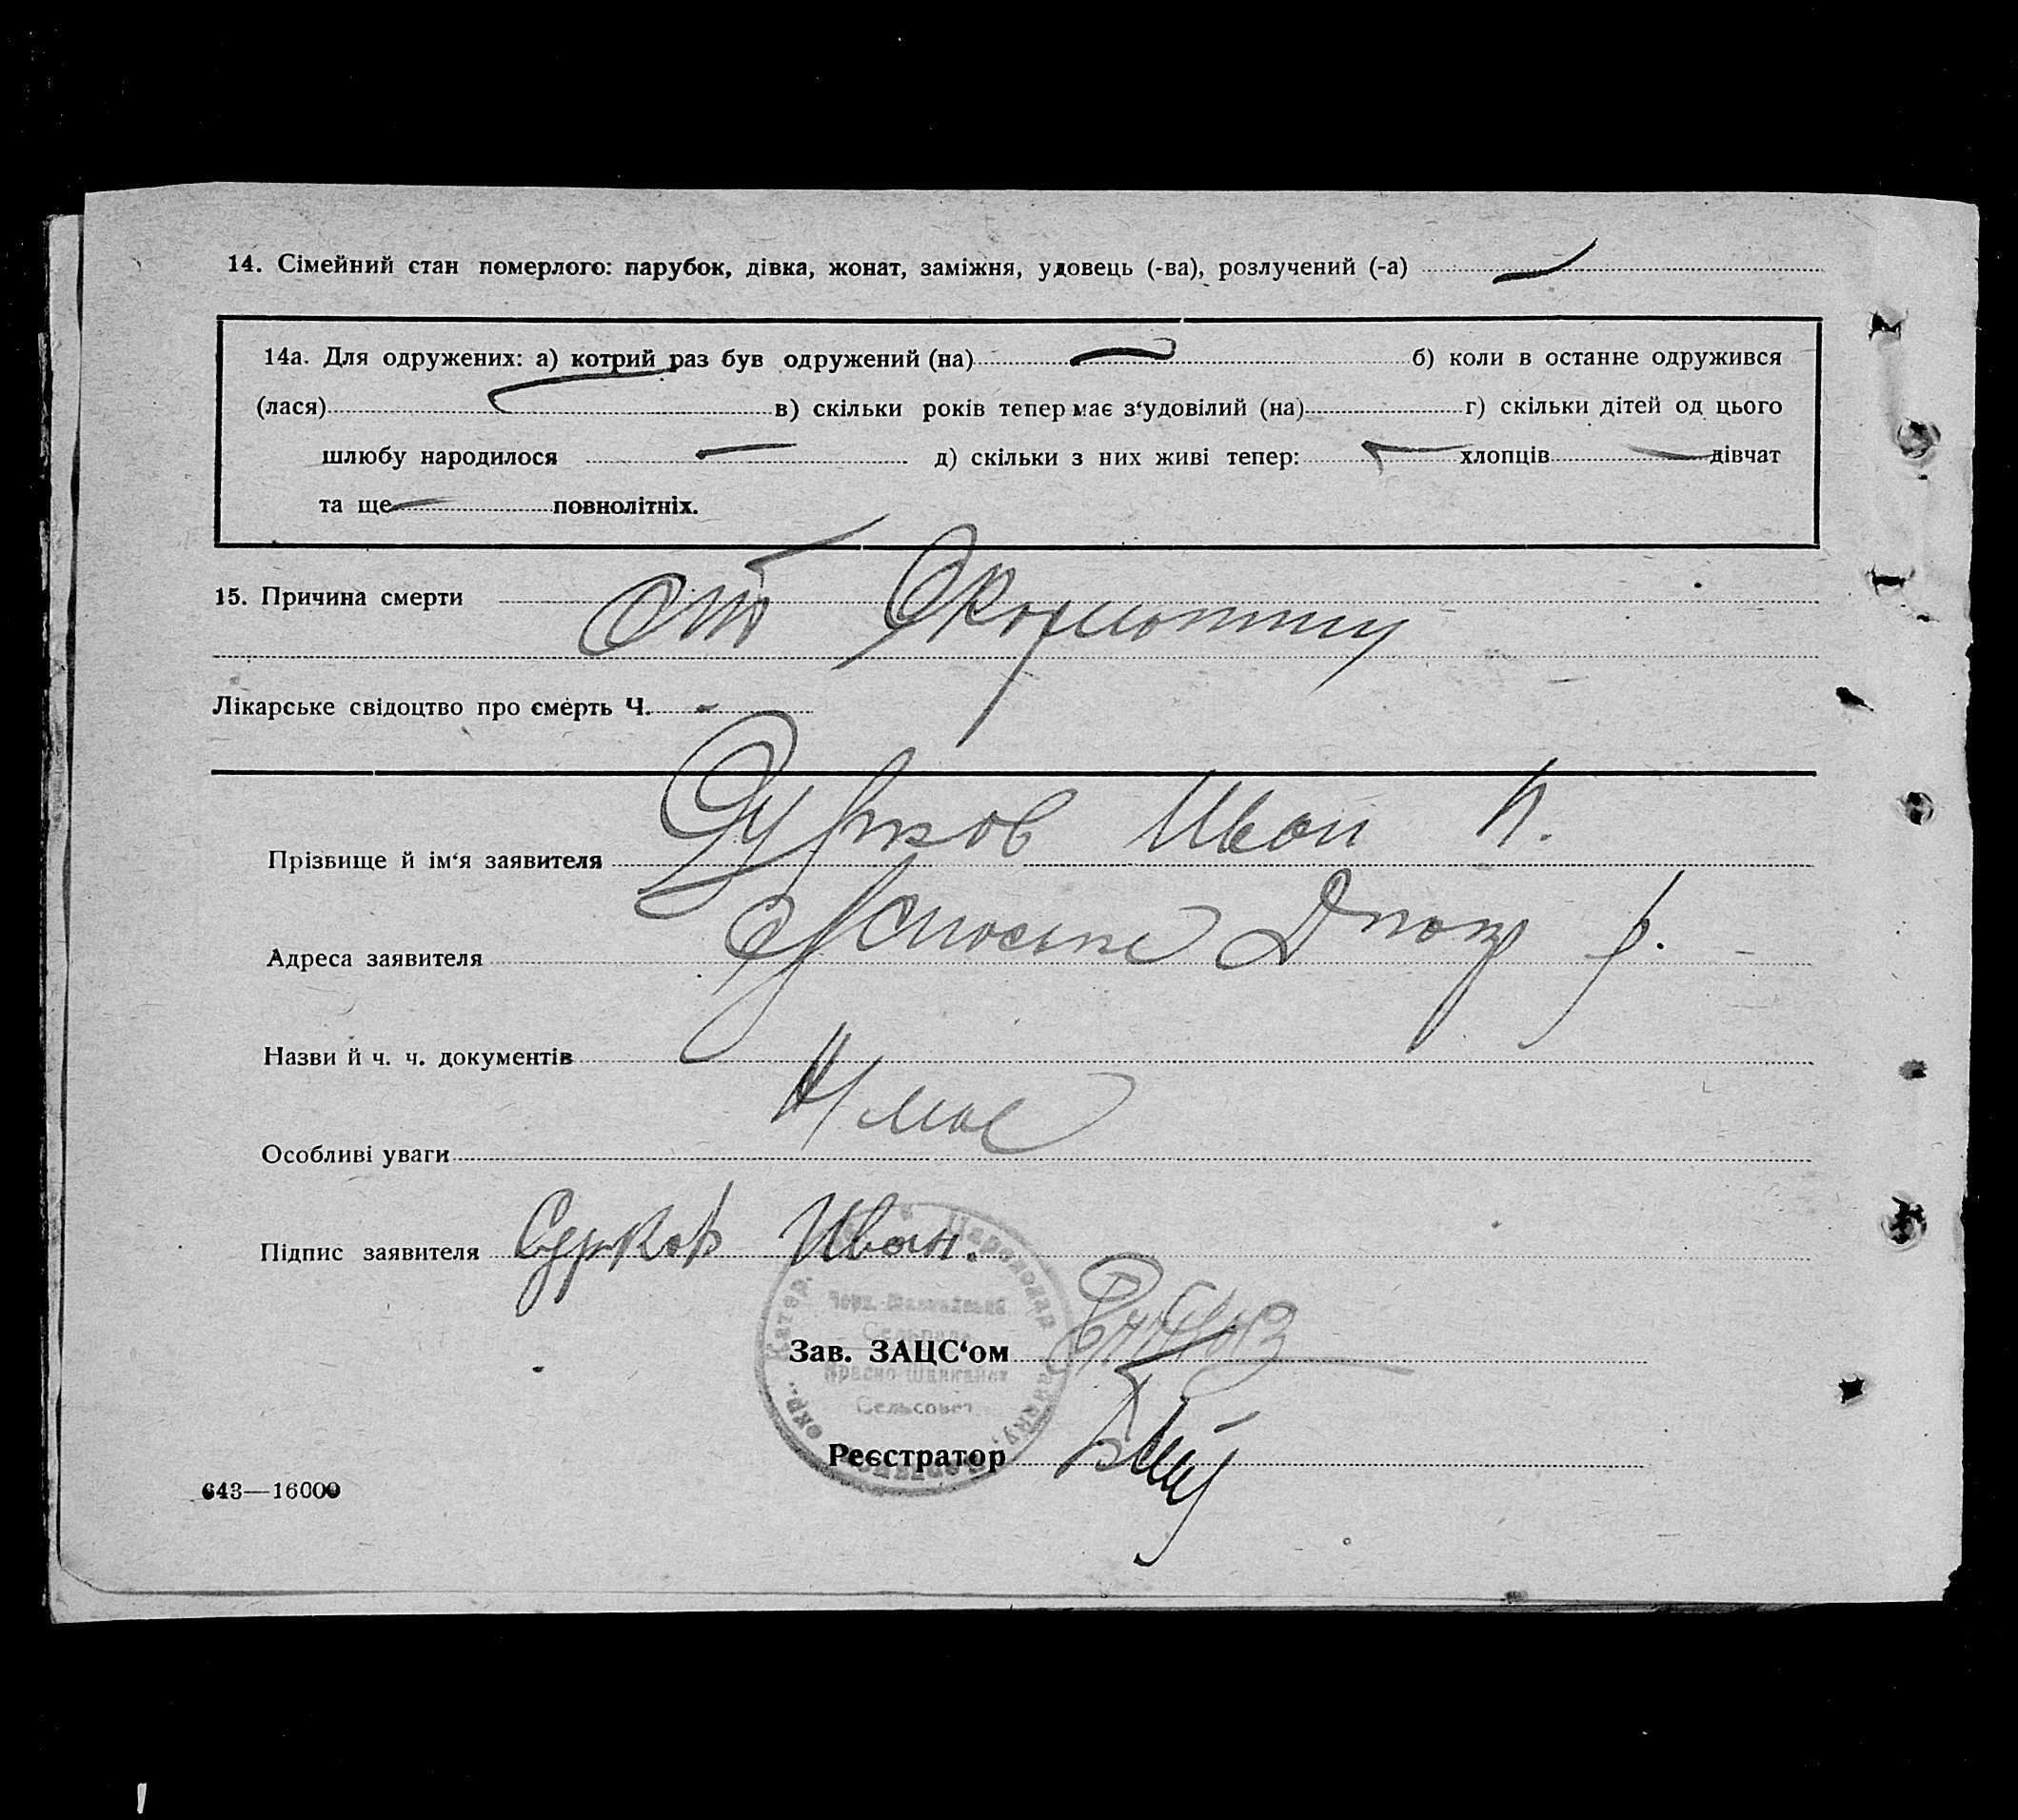 14. Сімейний стан померлого: парубок, дівка, жонат, заміжня, удовець (-ва), розлучений (-а)
14а. Для одружених: а) котрий раз був одружений (на) б) коли в останне одружився
(лася) в) скільки років тепер має з‘удовілий (на) г) скільки дітей од цього
шлюбу народилося д) скільки з них живі тепер: хлопців дівчат
та ще повнолітніх.
15. Причина смерти от Скорлотини
Лікарське свідоцтво про смерть Ч. -
Прізвище й ім‘я заявителя Сурков Иван П.
Адреса заявителя р.
Назви й ч. ч. документів
Особливі уваги
Підпис заявителя Сурков Иван.
Зав. ЗАЦС‘ом
Красно
Сельсовет
Реєстратор
643—16000